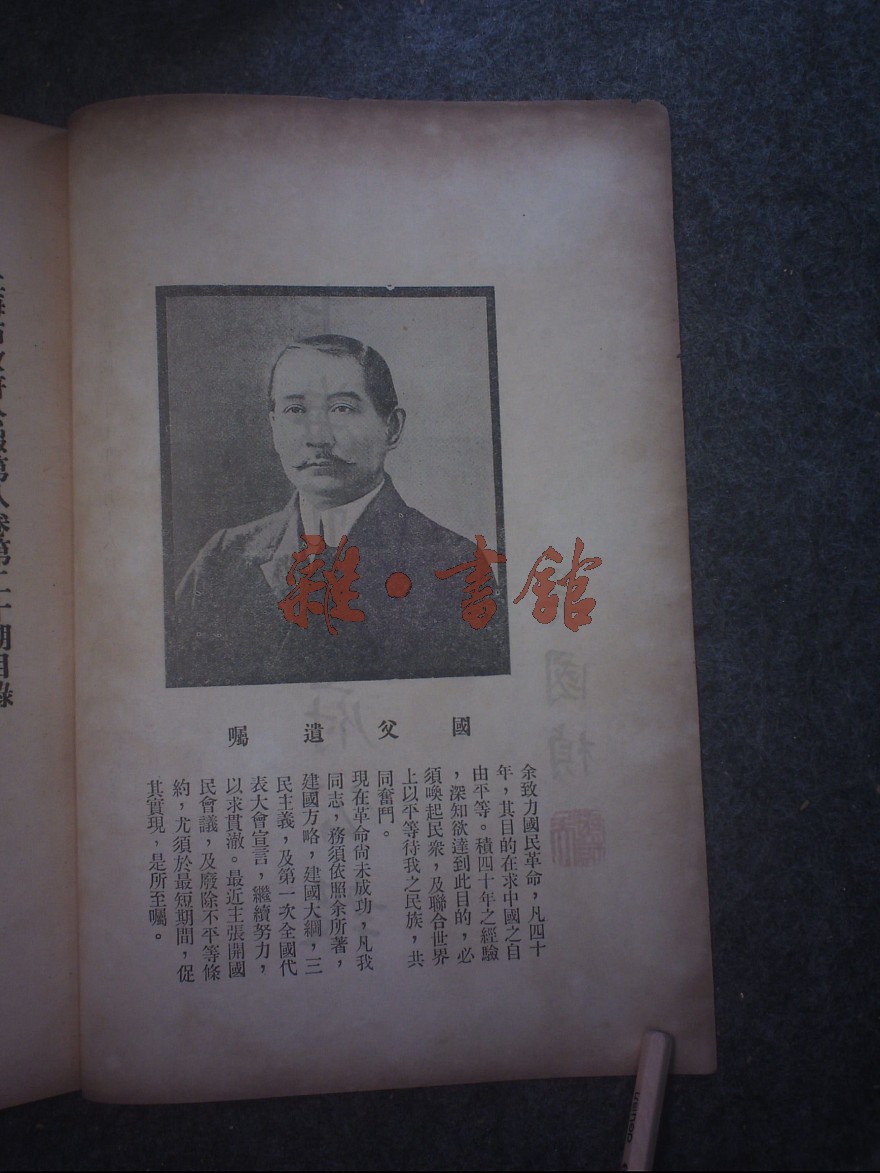 雜·書館
國父遺囑
余致力國民革命，凡四十
年，其目的在求中國之自
由平等。積四十年之經驗
，深知欲達到此目的，必
須喚起民衆，及聯合世界
上以平等待我之民族，共
同奮鬥。
現在革命尚未成功，凡我
同志，務須依照余所著，
建國方略，建國大綱，三
民主義，及第一次全國代
表大會宣言，繼續努力，
以求貫澈。最近主張開國
民會議，及廢除不平等條
約，尤須於最短期間，促
其實現，是所至囑。
期目錄